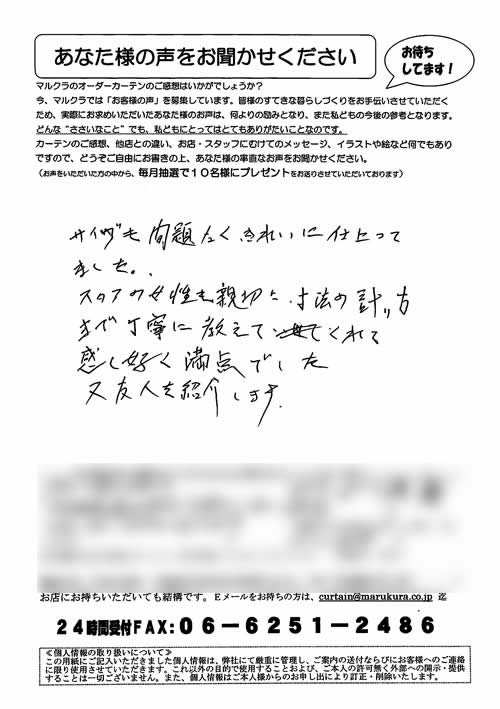 あなた様の声をお聞かせください
お待ち
してます!
マルクラのオーダーカーテンのご感想はいかがでしょうか?
今、マルクラでは「お客様の声」を募集しています。皆様のすてきな暮らしづくりをお手伝いさせていただく
ため、実際にお求めいただいたあなた様のお声は、何よりの励みとなり、また私どもの今後の参考となります。
どんな“ささいなこと”でも、私どもにとってはとてもありがたいことなのです。
カーテンのご感想、他店との違い、お店・スタッフにむけてのメッセージ、イラストや絵など何でもあり
ですので、どうぞご自由にお書きの上、あなた様の率直なお声をお聞かせください。
(お声をいただいた方の中から、毎月抽選で10名様にプレゼントをお送りさせていただいております)
サイズも問題なくきれいに仕上って
ました。
スタッフの女性も親切に、寸法の計り方
まで丁寧に教えてくれて
感じ好く満点でした
又友人を紹介します.
お店にお持ちいただいても結構です。Eメールをお持ちの方は、curtain@marukura.co.jp 迄
24時間受付FAX:06-6251-2486
≪個人情報の取り扱いについて≫
この用紙にご記入いただきました個人情報は、弊社にて厳重に管理し、ご案内の送付ならびにお客様へのご連絡
に限り使用させていただきます。これ以外の目的で使用することおよび、ご本人の許可無く外部への開示・提供
することは一切ございません。また、個人情報はご本人様からのお申し出により訂正・削除いたします。